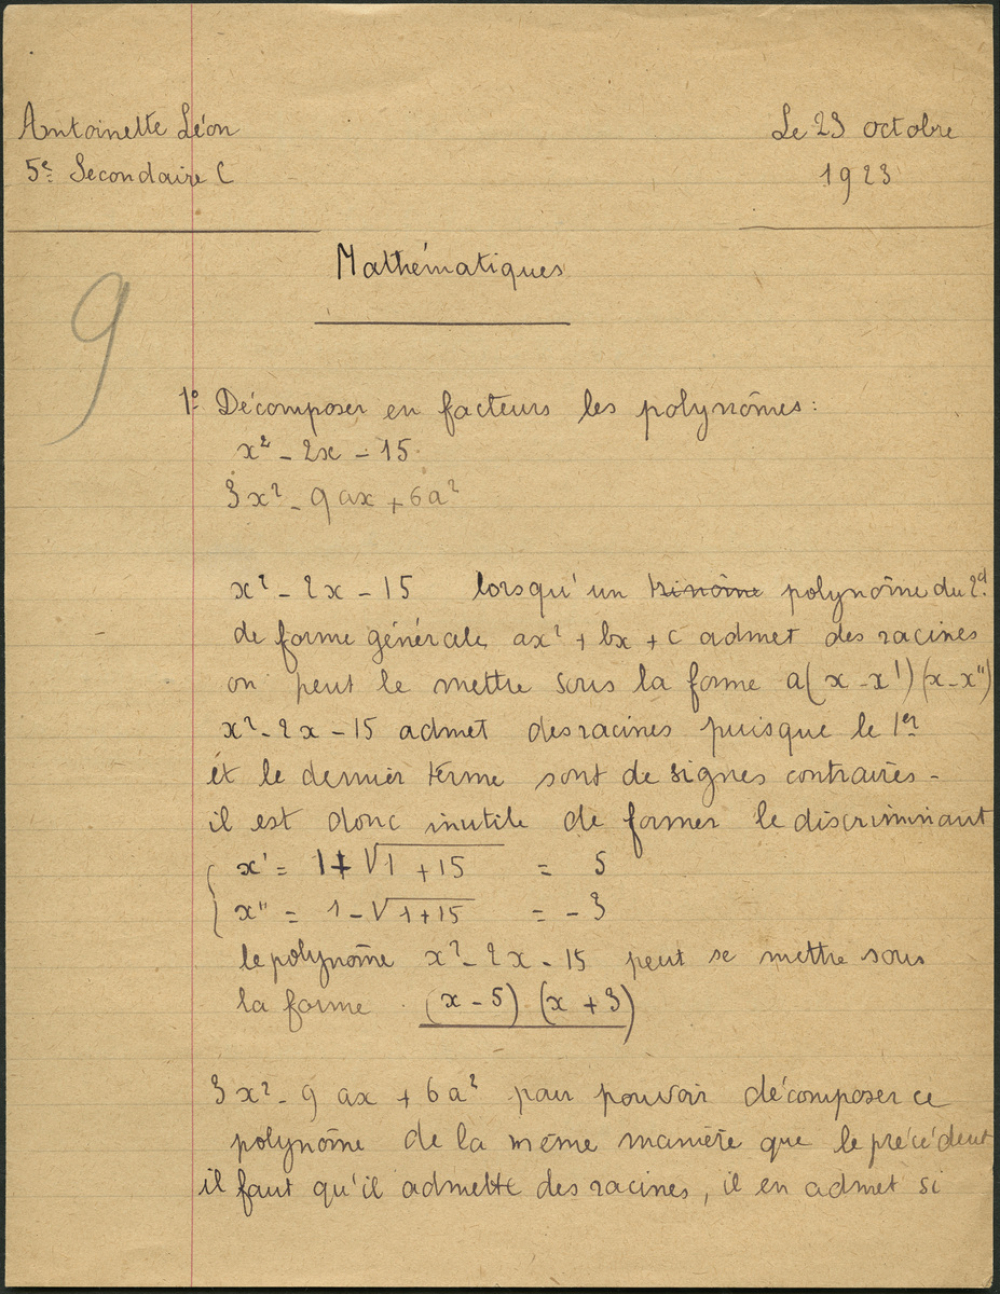 Antoinette Léon
Le 23 octobre
5e Secondaire C
1923
Mathématiques
9
1° Décomposer en facteurs les polynômes :
x² - 2x - 15
3x² - 9ax + 6a²
x² - 2x - 15 lorsqu'un trinôme polynôme du 2d
de forme générale ax² + bx + c admet des racines
on peut le mettre sous la forme a(x - x')(x - x'')
x² - 2x - 15 admet des racines puisque le 1er
et le dernier terme sont de signes contraires -
il est donc inutile de former le discriminant
x' = 1 + √1 + 15 = 5
x'' = 1 - √1 + 15 = - 3
le polynôme x² - 2x - 15 peut se mettre sous
la forme (x - 5) (x + 3)
3x² - 9 ax + 6a² pour pouvoir décomposer ce
polynôme de la même manière que le précédent
il faut qu'il admette des racines, il en admet si